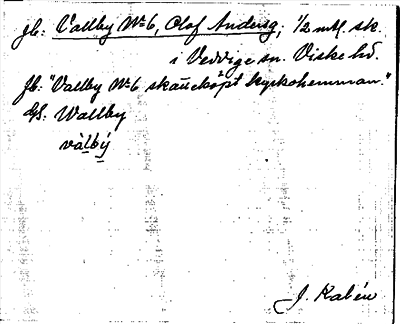 jb: Vallby No 6, Olof Andersg; 1/2 mtl. sk.
i Veddige sn. Viske hd.
Jb: "Vallby No 6 skatteköpt kyrkohemman."
GS: Wallby
vàlbý
J. Kalén